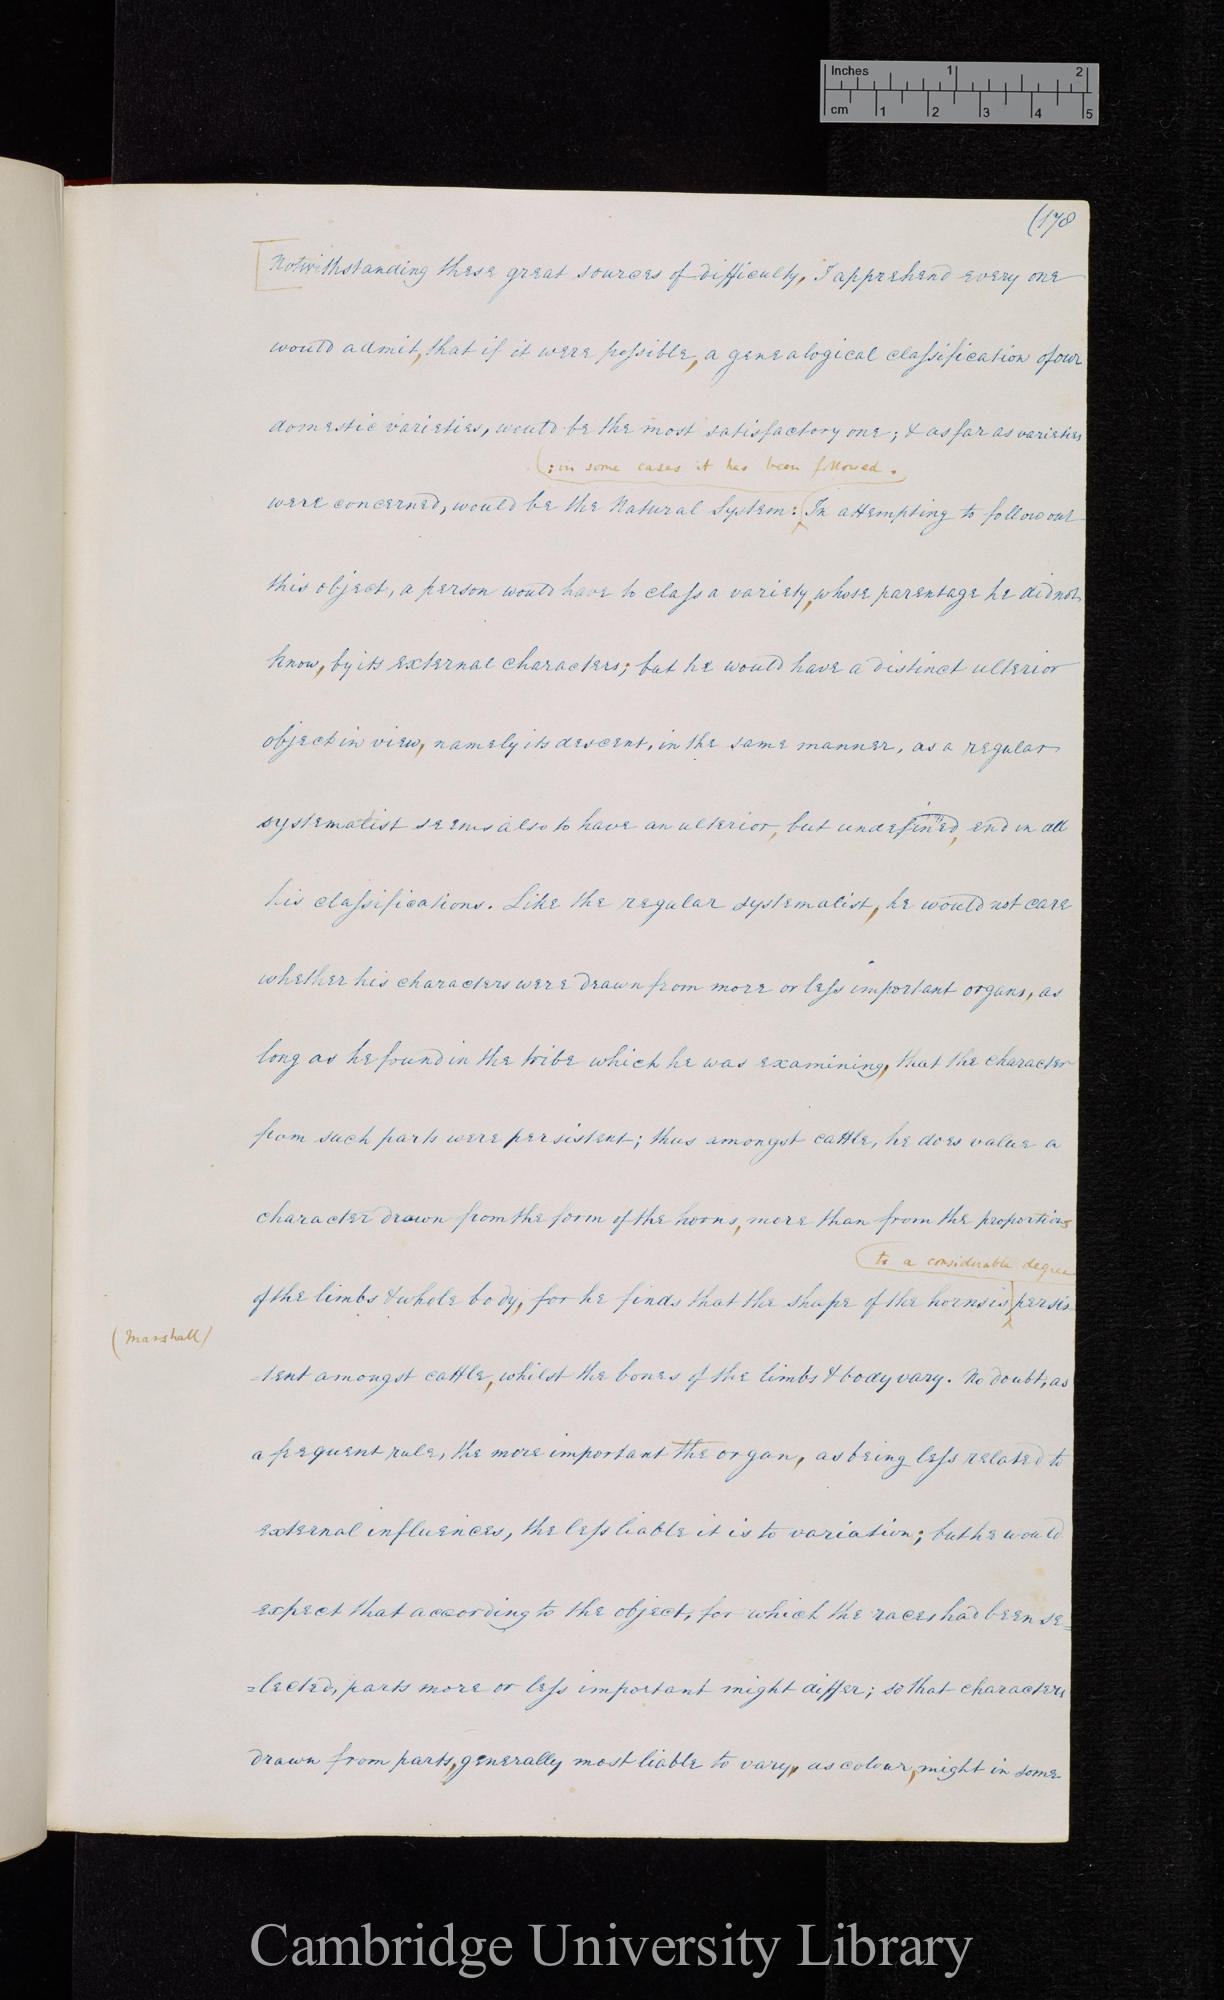 Inches 1 2
cm 1 2 3 4 5
(178
Notwithstanding these great sources of difficulty, I apprehend every one
would admit, that if it were possible, a genealogical classification of our
domestic varieties, would be the most satisfactory one; & as far as varieties
(; in some cases it has been followed.
were concerned, would be the Natural System: In attempting to follow out
this object, a person would have to class a variety, whose parentage he did not
know, by its external characters; but he would have a distinct ulterior
object in view, namely its descent, in the same manner, as a regular
systematist seems also to have an ulterior, but undefined, end in all
his classifications. Like the regular systematist, he would not care
whether his characters were drawn from more or less important organs, as
long as he found in the tribe which he was examining, that the character
from such parts were persistent; thus amongst cattle, he does value a
character drawn from the form of the horns, more than from the proportions
to a considerable degree
of the limbs & whole body, for he finds that the shape of the horns is persis
(Marshall)
-tent amongst cattle, whilst the bones of the limbs & body vary. No doubt, as
a frequent rule, the more important the organ, as being less related to
external influences, the less liable it is to variation; but he would
expect that according to the object, for which the races had been se=
=lected, parts more or less important might differ; so that characters
drawn from parts, generally most liable to vary, as colour, might in some
Cambridge University Library